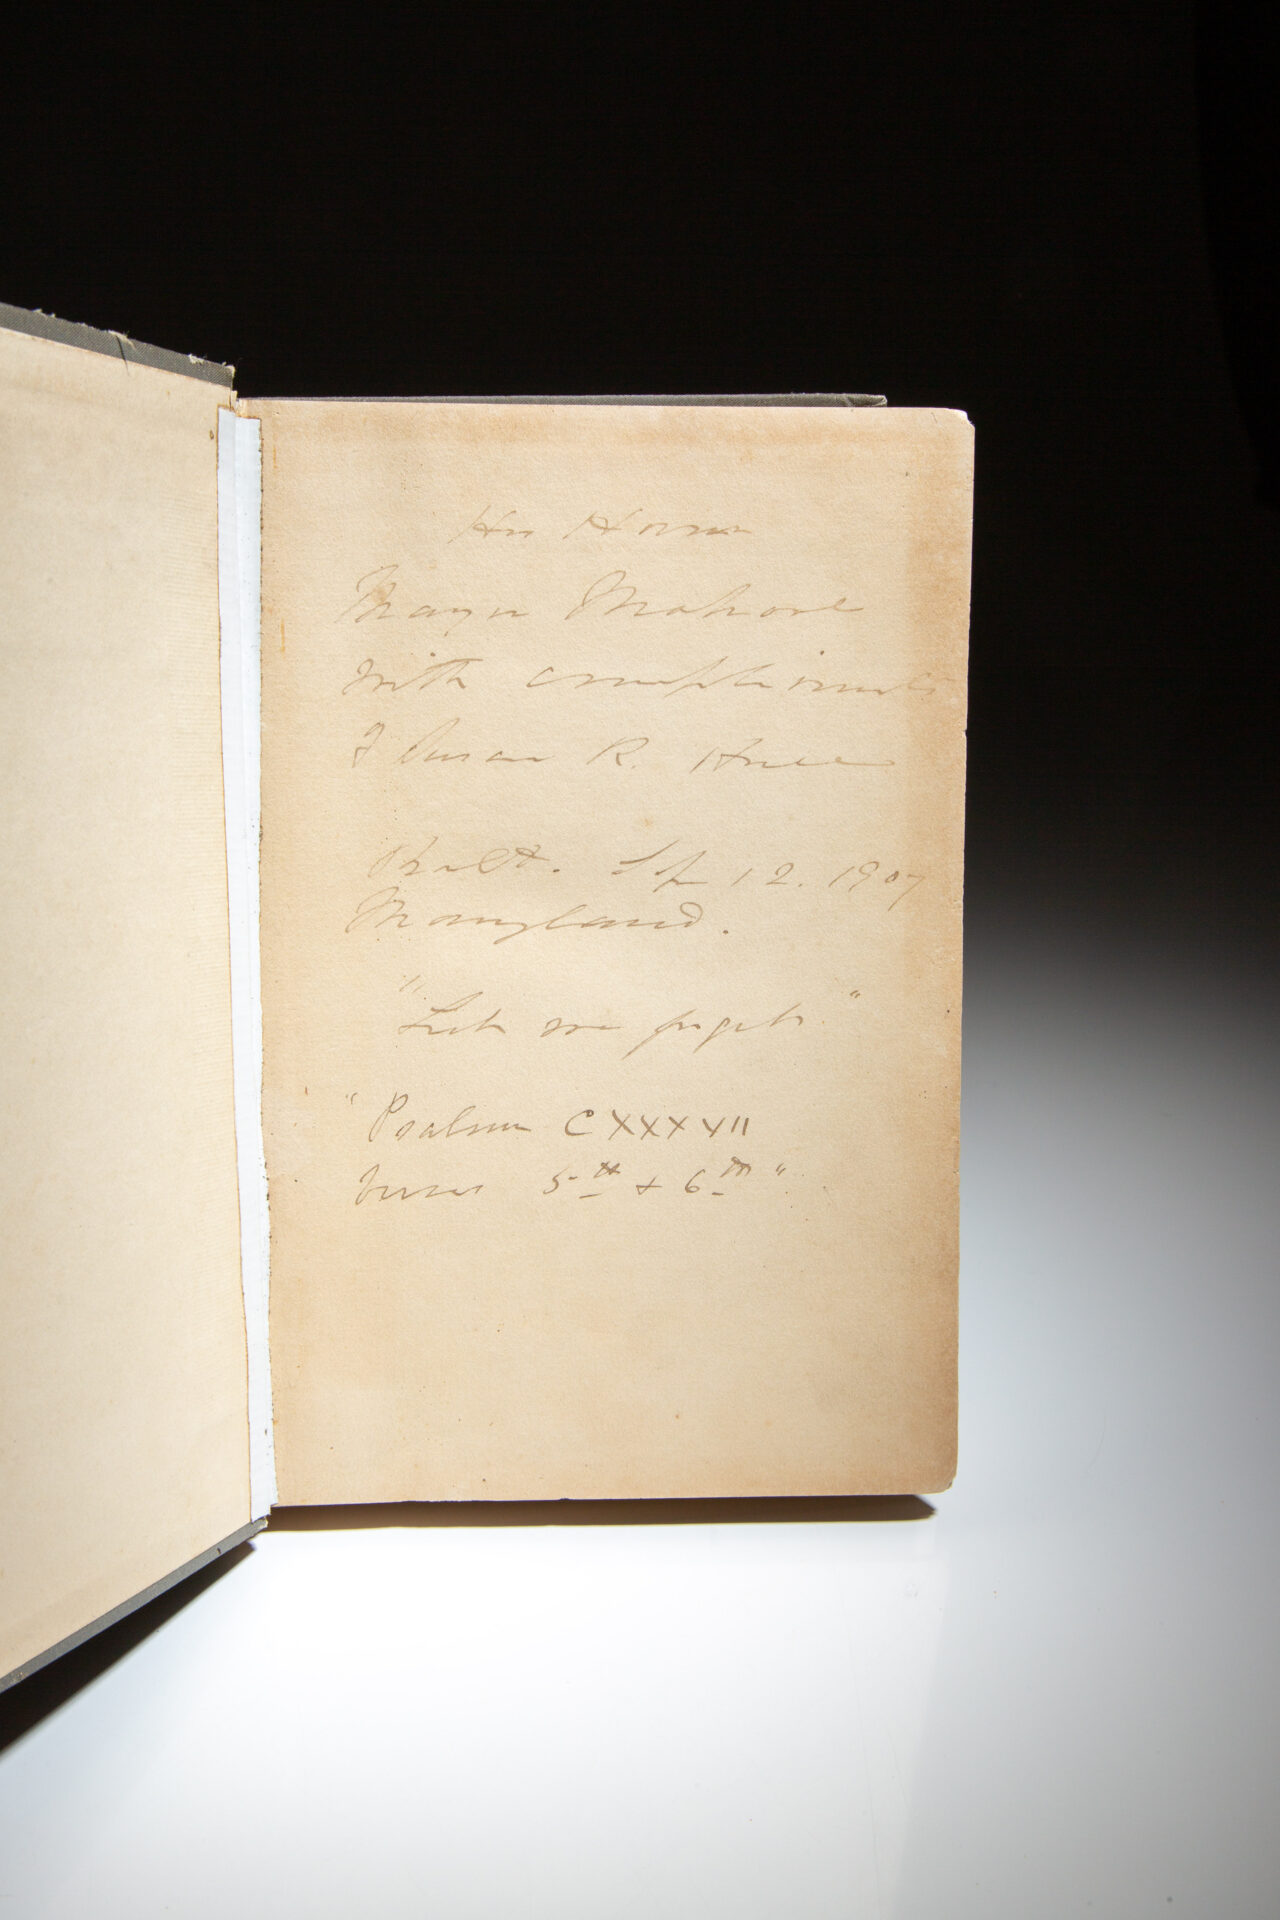 His Honor
Mayor Mahool
with compliments
of Susan R. Hull
Balt. Sep 12. 1907
Maryland.
"Lest we forget"
"Psalm CXXXVII
verses 5th & 6th".